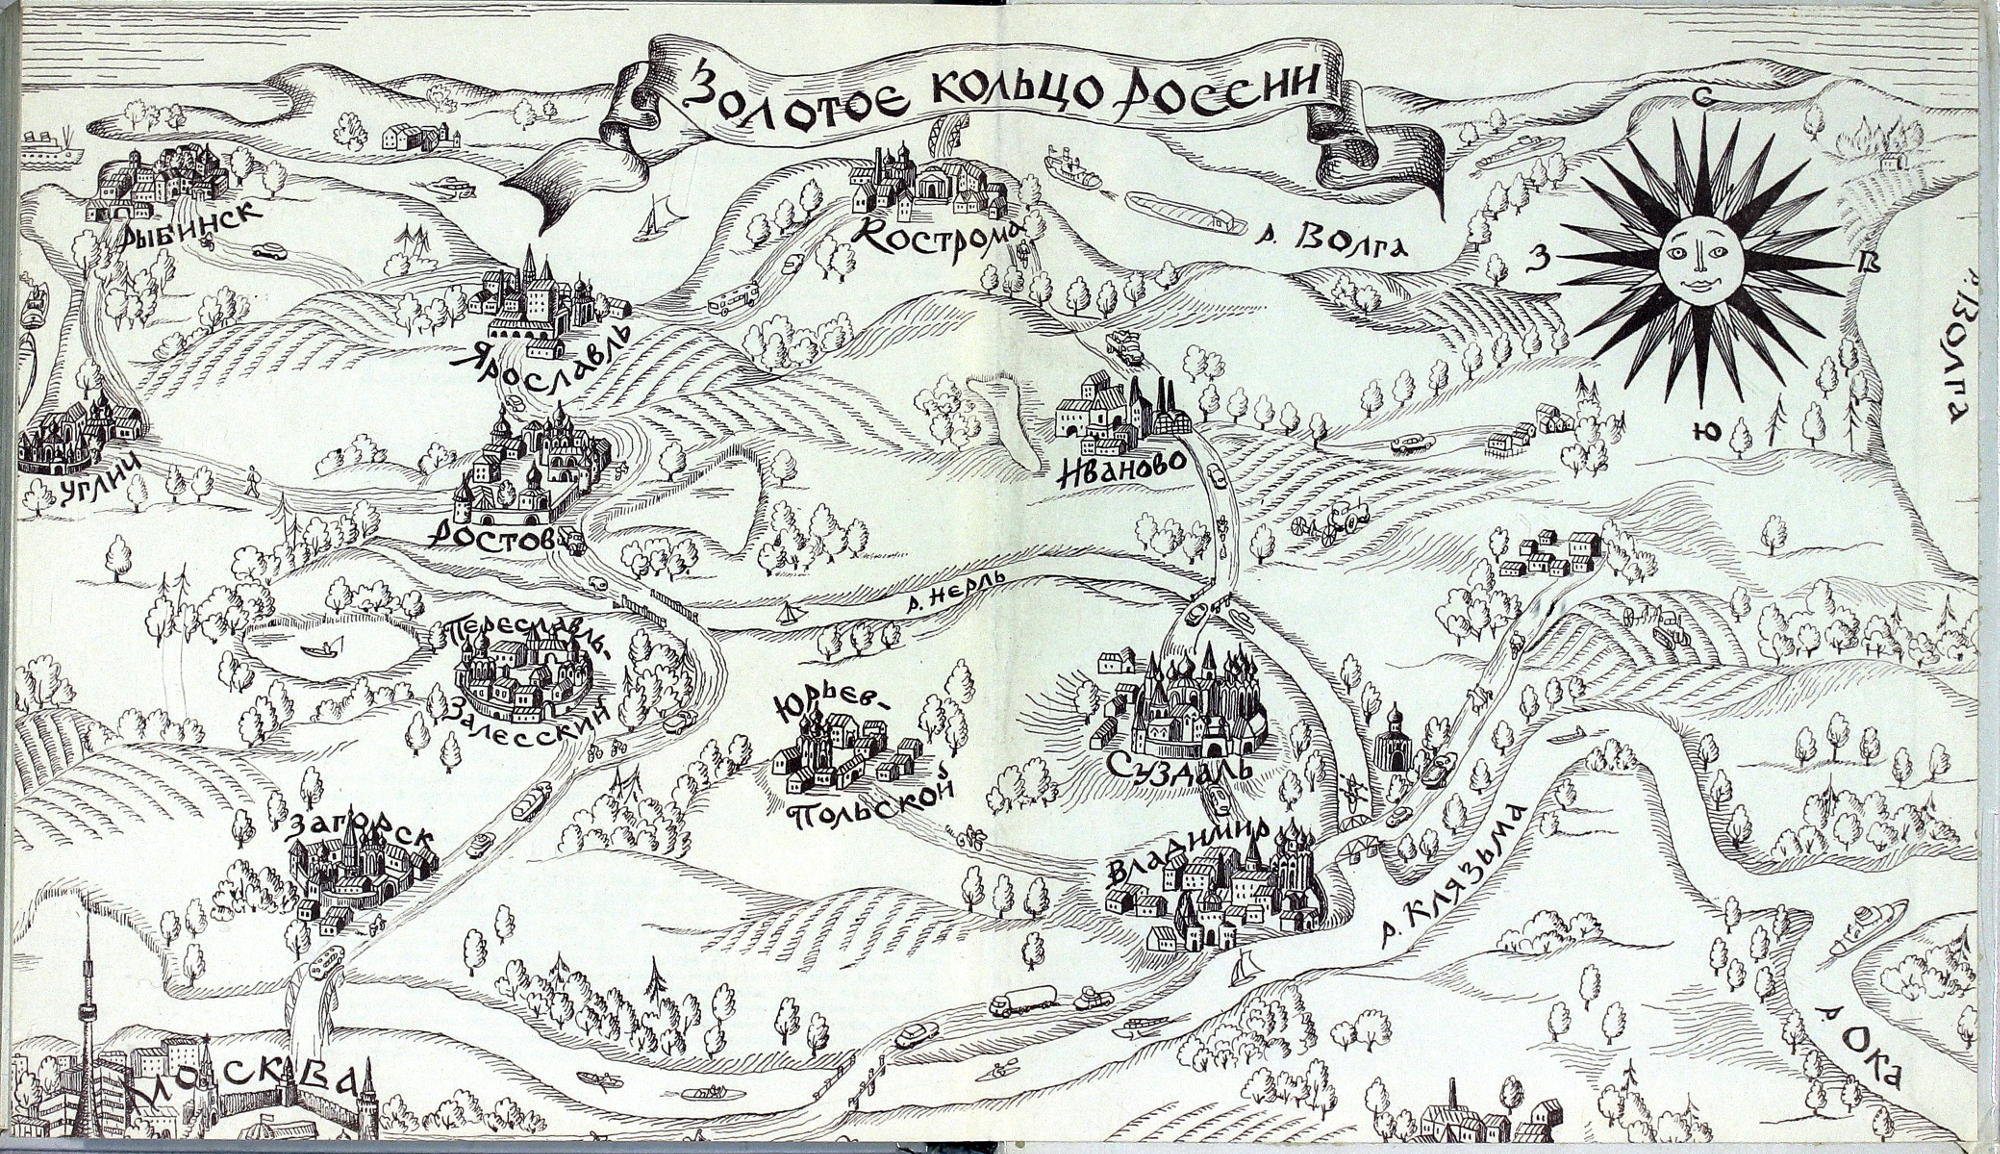 Золотое кольцо России
С
Рыбинск
Кострома
р. Волга
З
В
р. Волга
Ярославль
Ю
Углич
Иваново
Ростов
р. Нерль
Переславль-
Залесский
Юрьев-
Польской
Суздаль
Загорск
Владимир
р. Клязьма
р. Ока
Москва